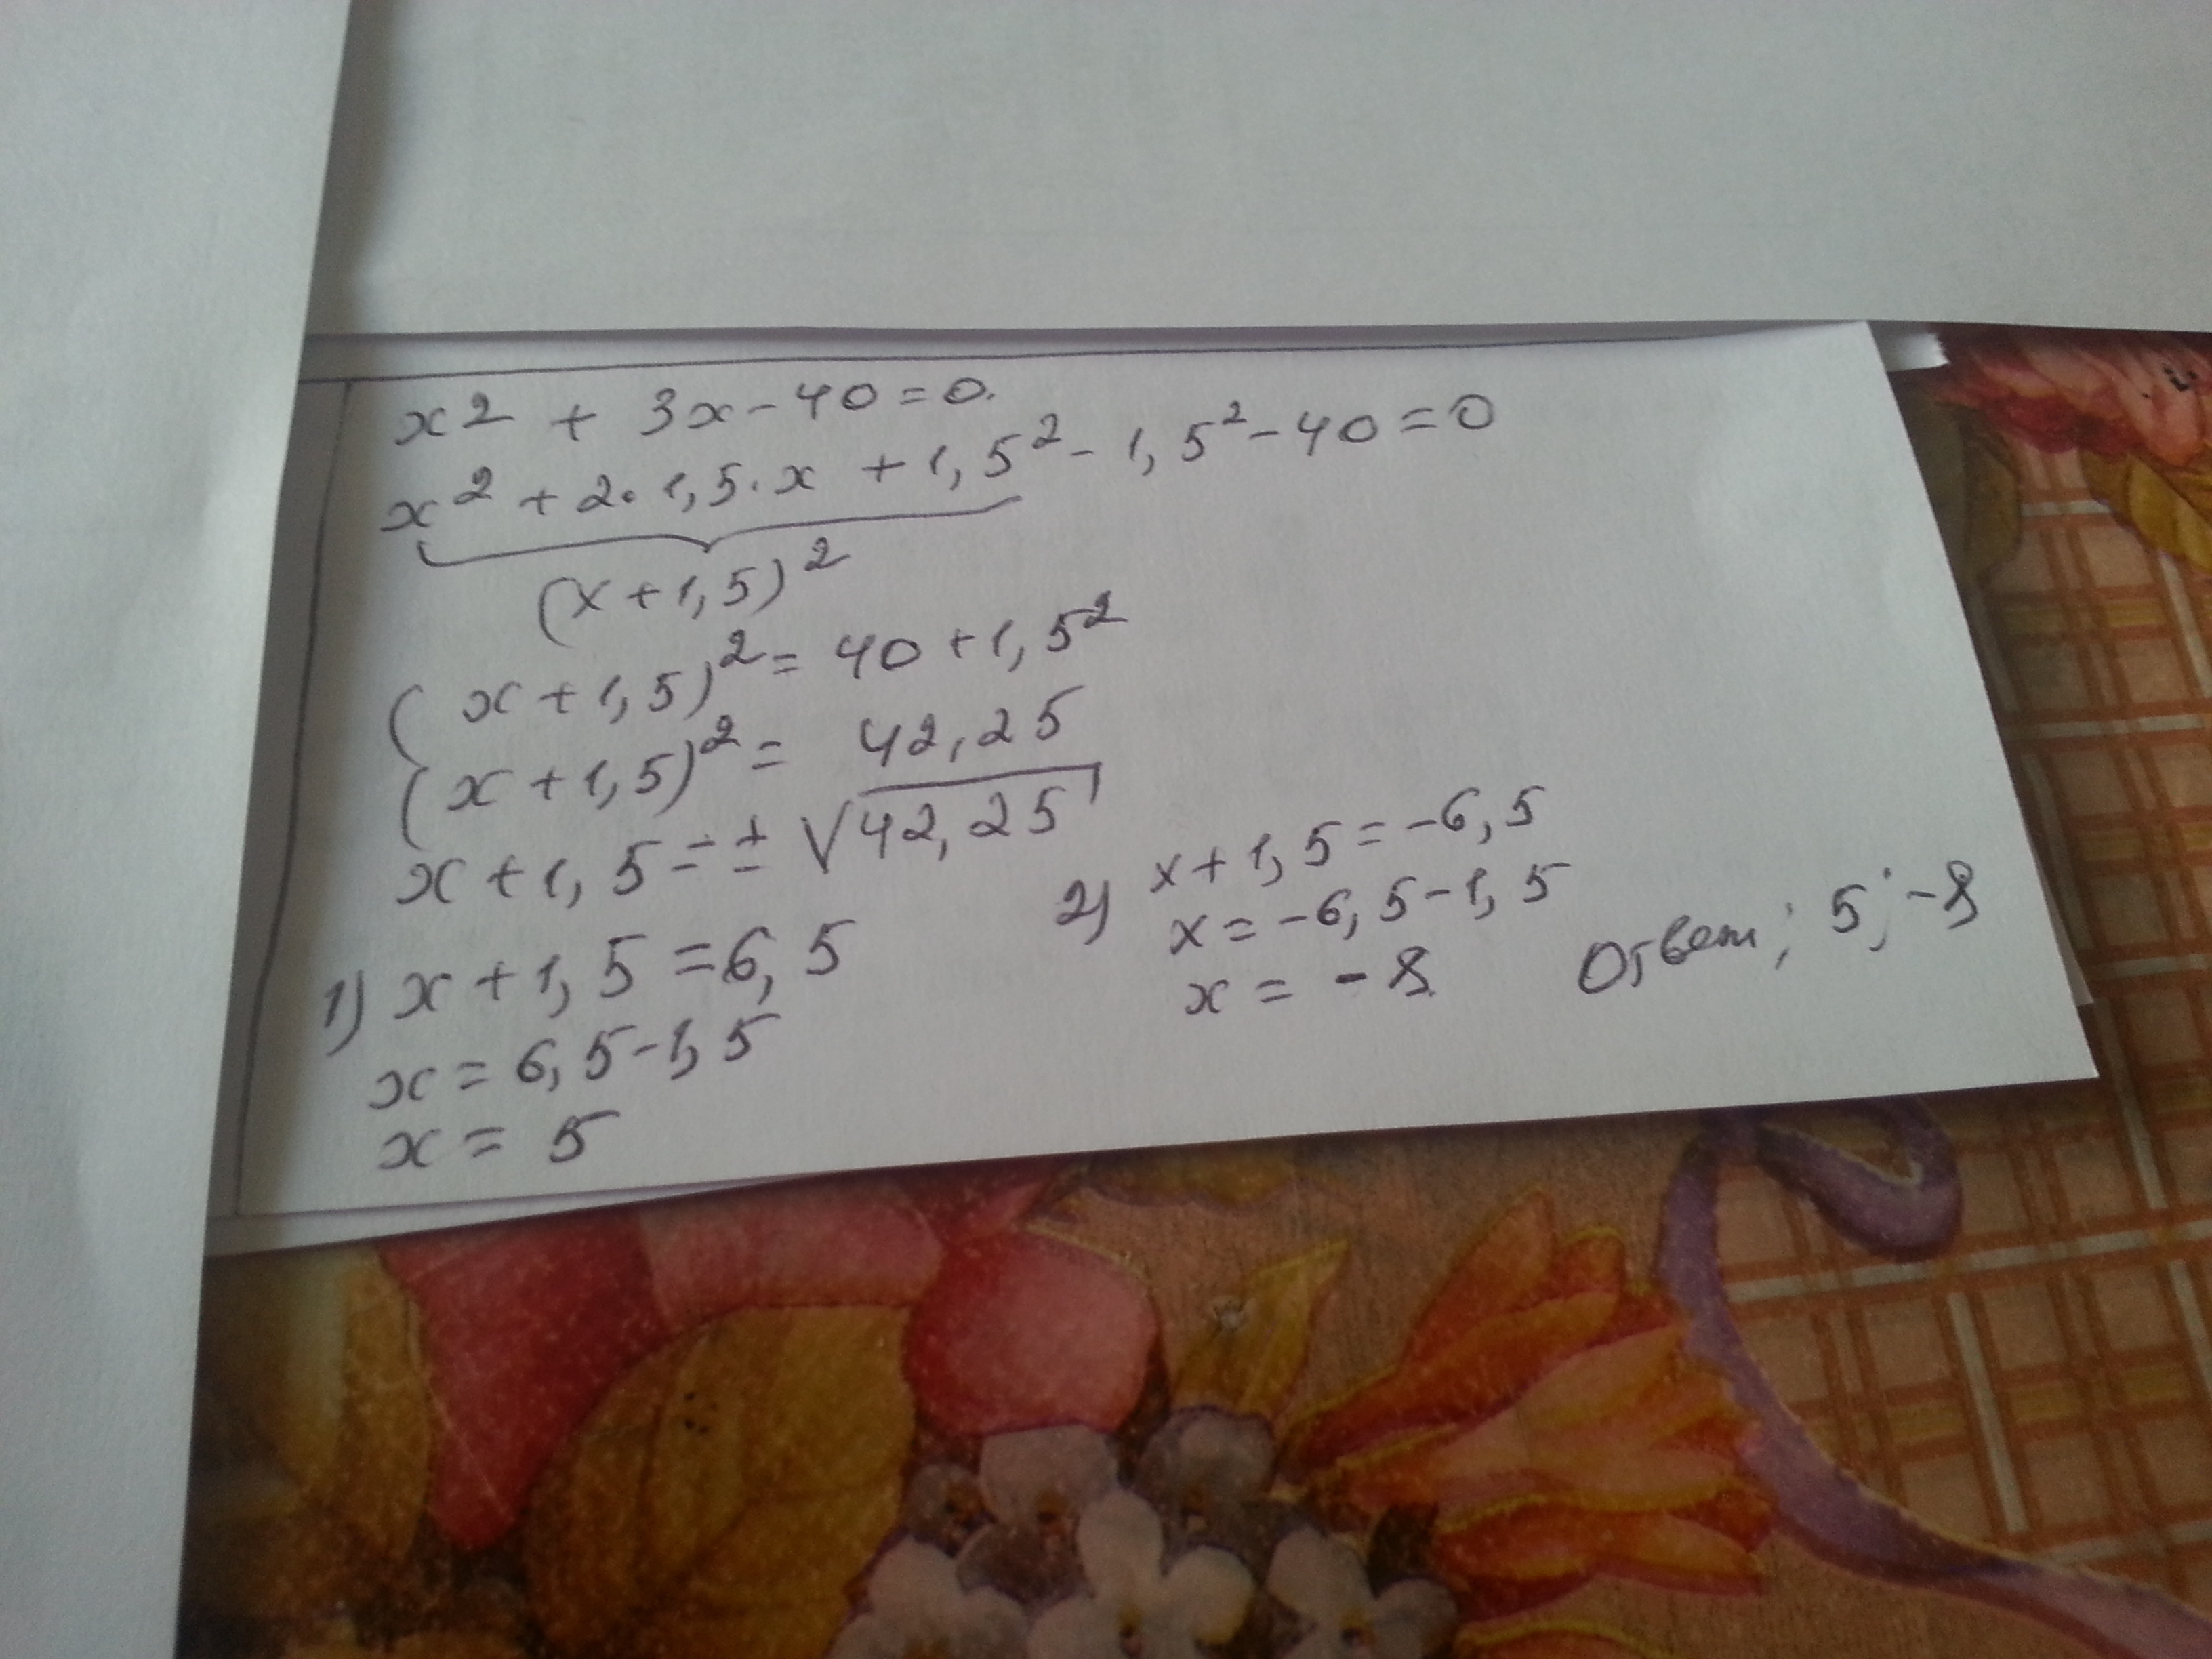 x² + 3x - 40 = 0.
x² + 2 · 1,5 · x + 1,5² - 1,5² - 40 = 0
(x + 1,5)²
(x + 1,5)² = 40 + 1,5²
(x + 1,5)² = 42,25
x + 1,5 = ± √42,25
1) x + 1,5 = 6,5
x = 6,5 - 1,5
x = 5
2) x + 1,5 = -6,5
x = -6,5 - 1,5
x = -8
Ответ; 5; -8